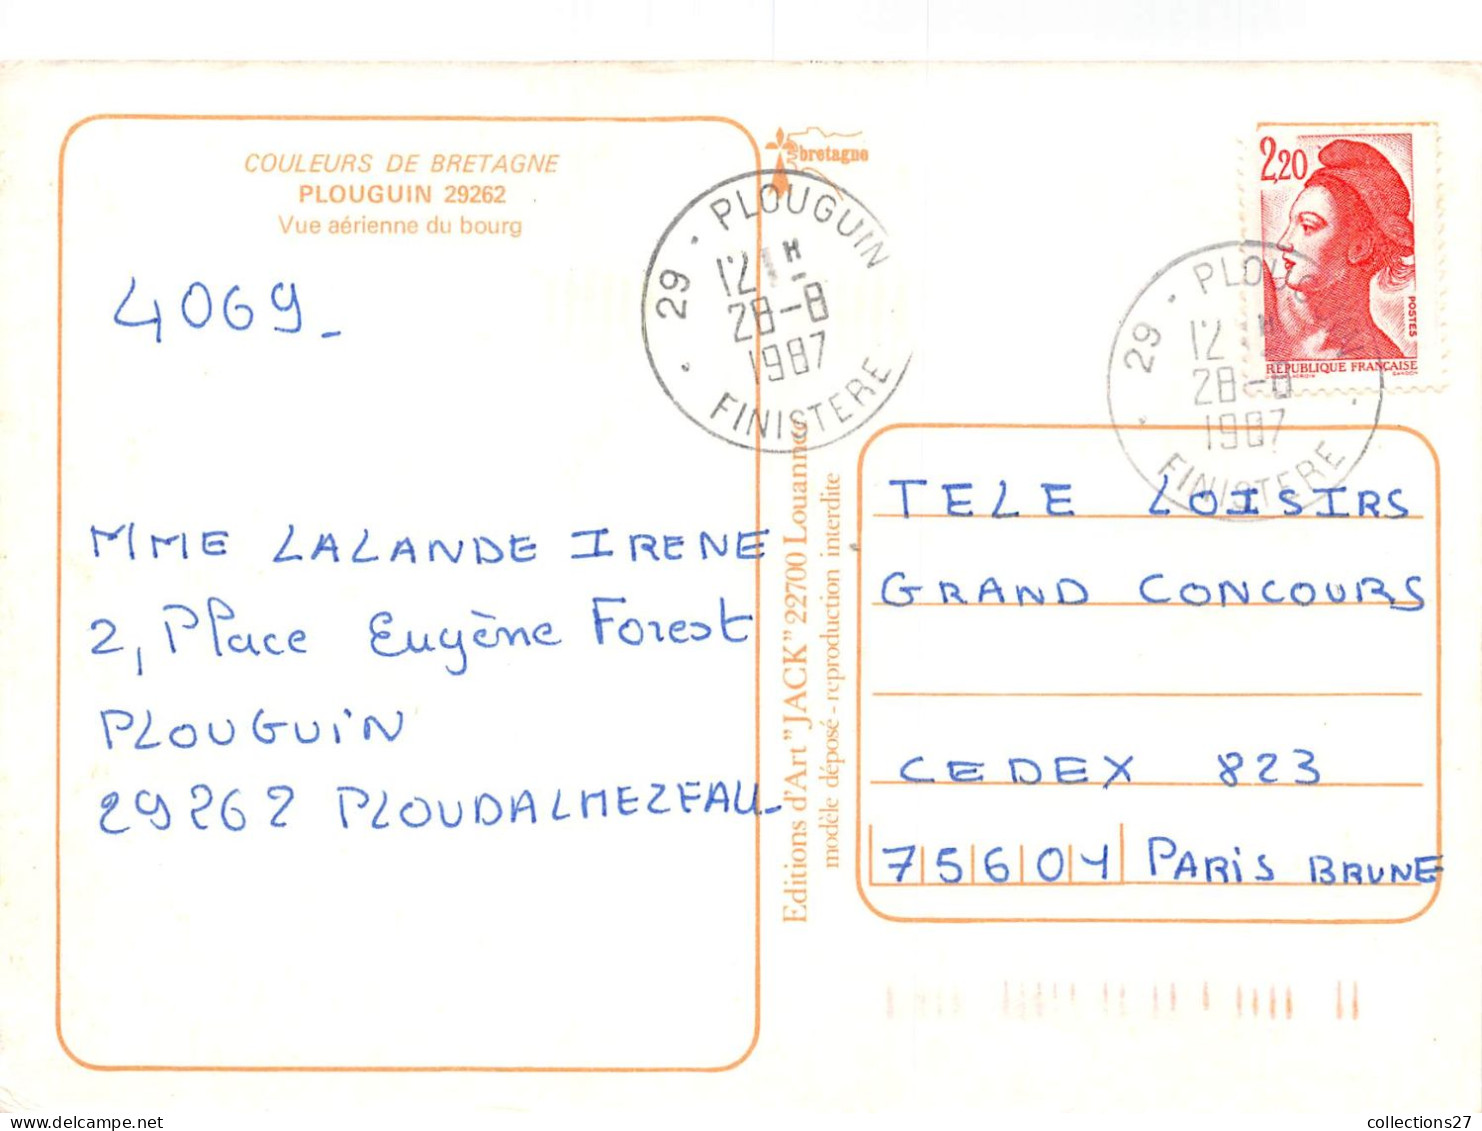 COULEURS DE BRETAGNE
PLOUGUIN 29262
Vue aérienne du bourg
4069_
MME LALANDE IRENE
2, Place Eugène Forest
PLOUGUIN
29262 PLOUDALMEZEAU_
Editions d'Art "JACK" 22700 Louannec
modèle déposé - reproduction interdite
bretagne
29 - PLOUGUIN
12 H
28-8
1987
FINISTERE
2,20
POSTES
REPUBLIQUE FRANÇAISE
29 - PLOUGUIN
12 H
28-8
1987
FINISTERE
TELE LOISIRS
GRAND CONCOURS
CEDEX 823
75604 PARIS BRUNE
collections27